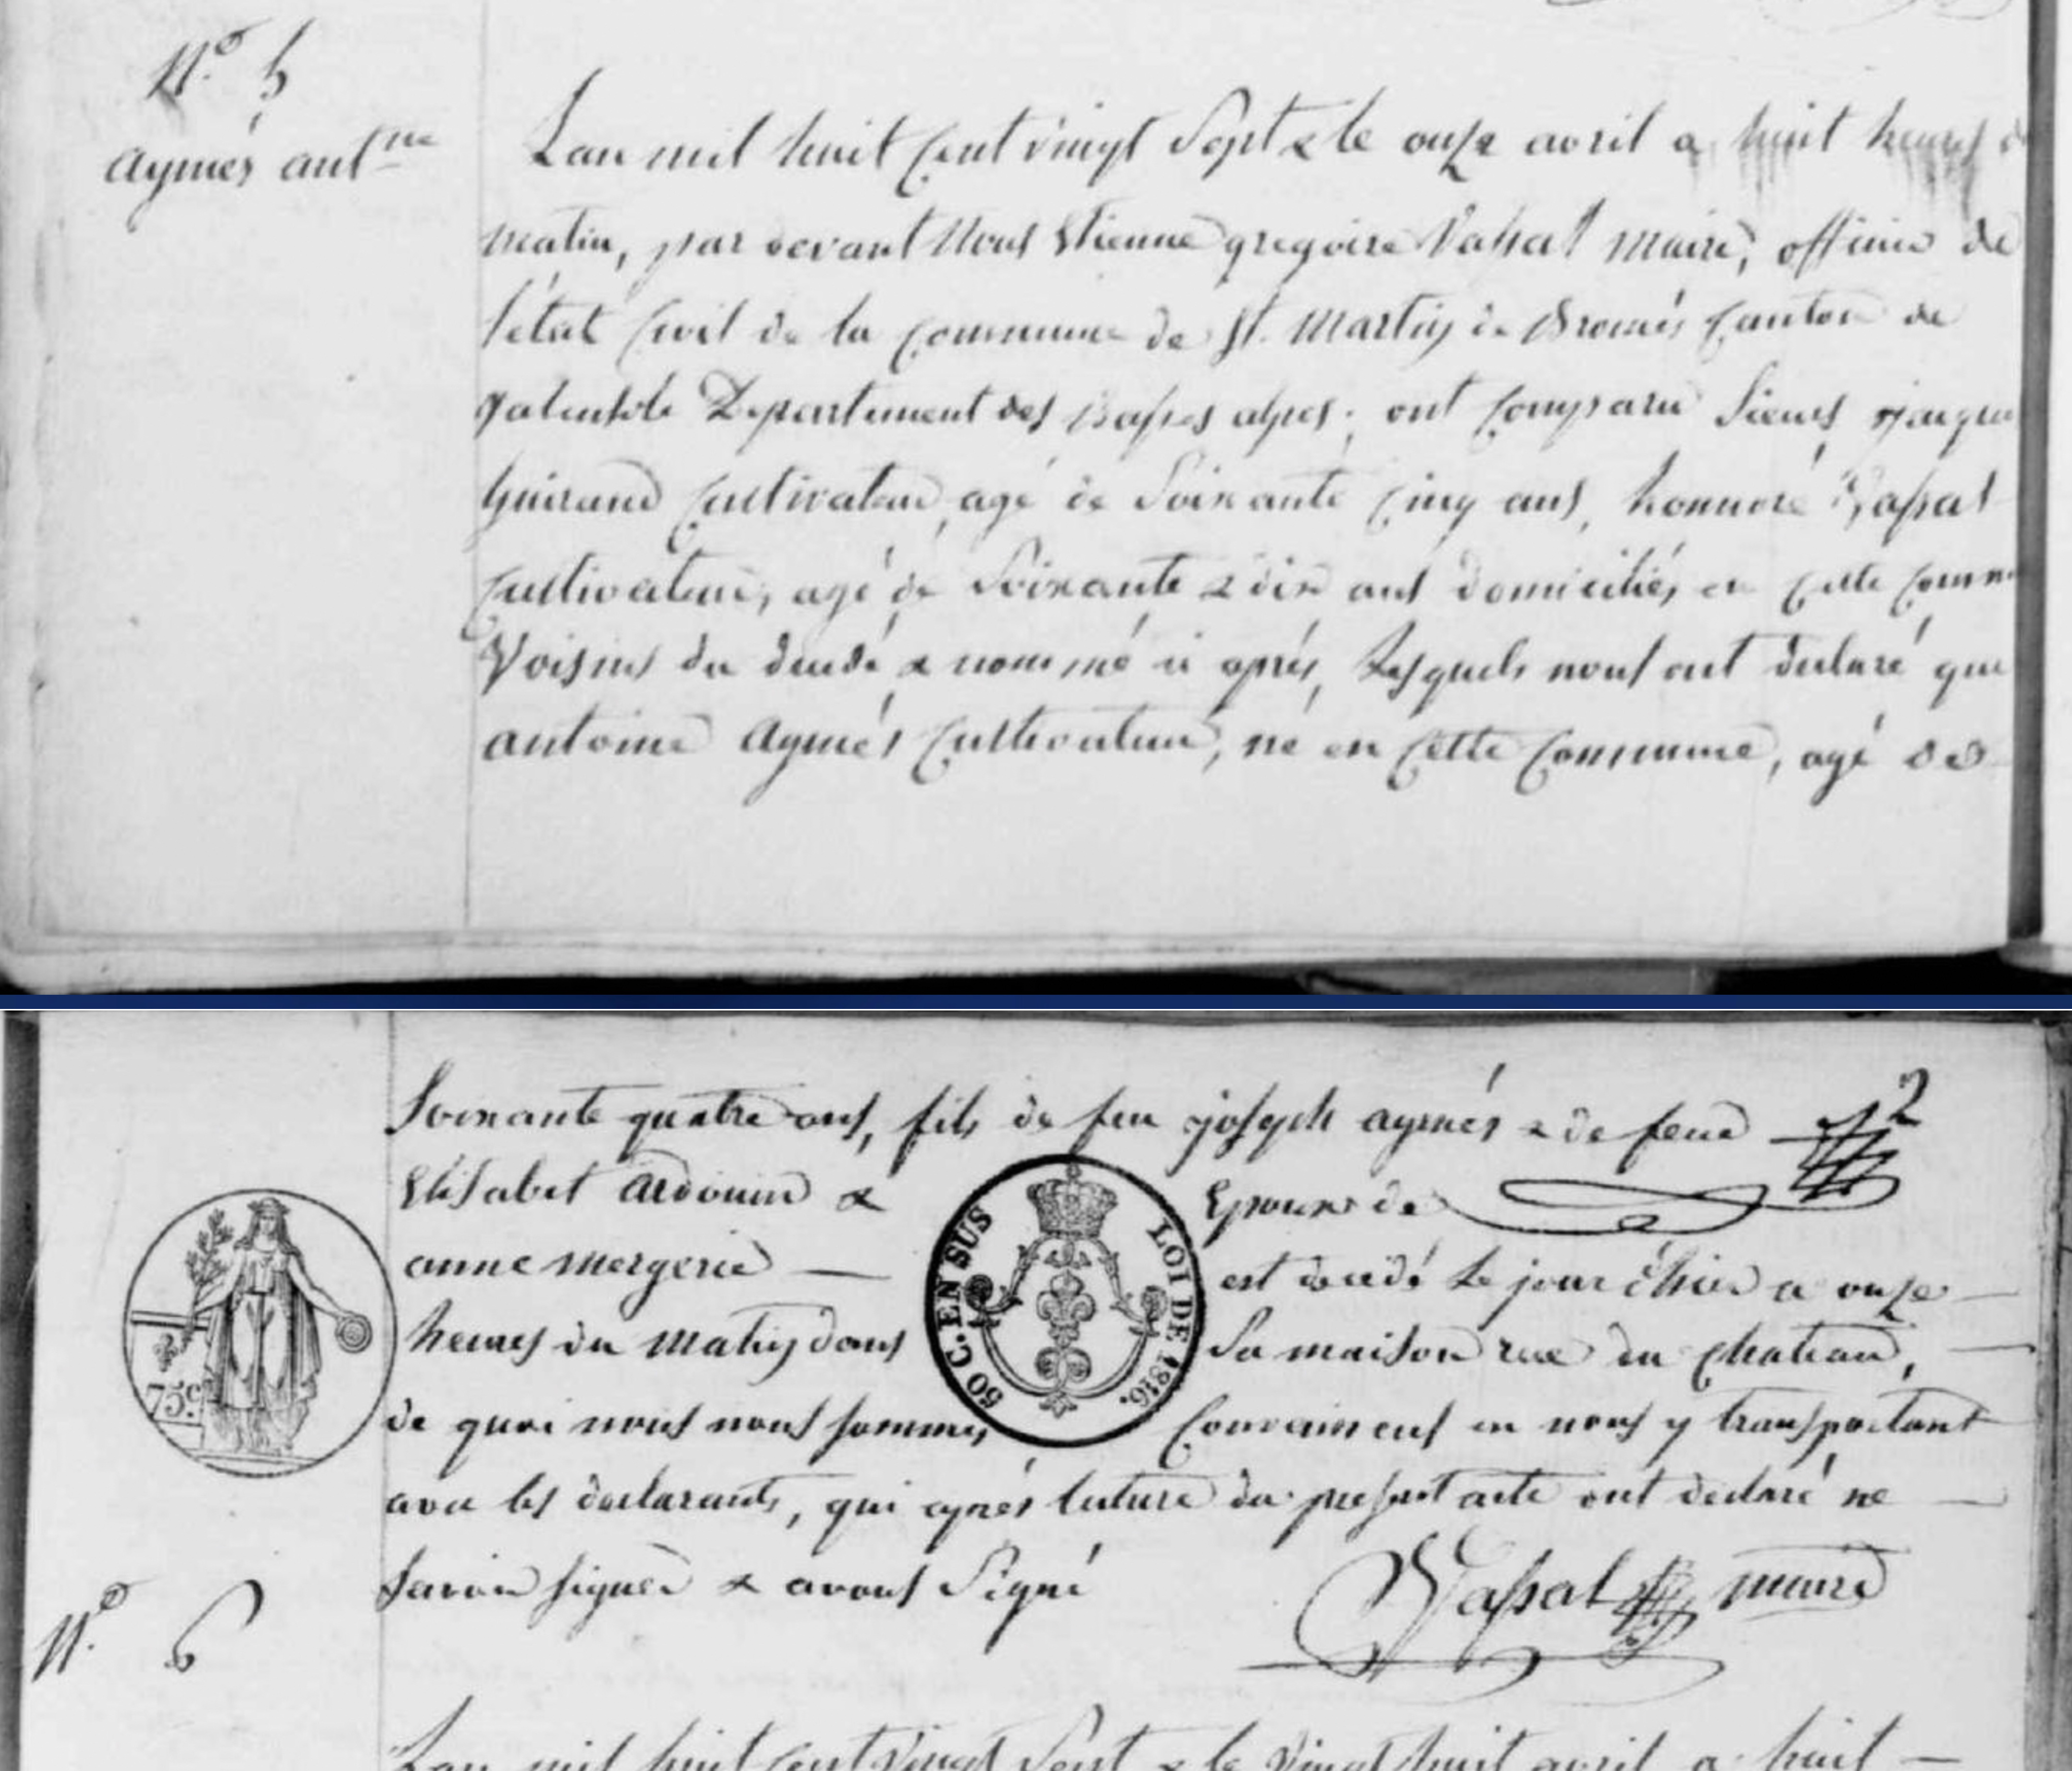 N.o 5
aymés ant.ne
Lan mil huit Cent vingt Sept & le onze avril a huit heures
matin, par devant Nous Etienne gregoire Vassal maire, officier de
l'état Civil de la Commune de St. Martin de Bromés Canton de
Valensole Département des Basses alpes; ont Comparu Sieurs
Guirand Cultivateur, agé de Soixante Cinq ans, honnoré Vassal
Cultivateur, agé de Soixante & dix ans domiciliés en Cette Comm
Voisins du decedé & nommé ci après, Lesquels nous ont declaré que
antoine Aymés Cultivateur, né en Cette Commune, agé de
Soixante quatre ans, fils de feu joseph aymés & de feue
2
Elisabet Ardouin & Epoux de
anne mergerie est decedé le jour d'hier a onze
heures du matin dans Sa maison rue du Chateau,
de quoi nous nous sommes Convaincus en nous y transportant
avec les declarants, qui après lecture du present acte ont declaré ne
Savoir signer & avons Signé
Vassal maire
50 C. EN SUS LOI DE 1816.
75c.
N.o 6
Lan mil huit Cent Vingt Sept & le Vingt huit avril a huit